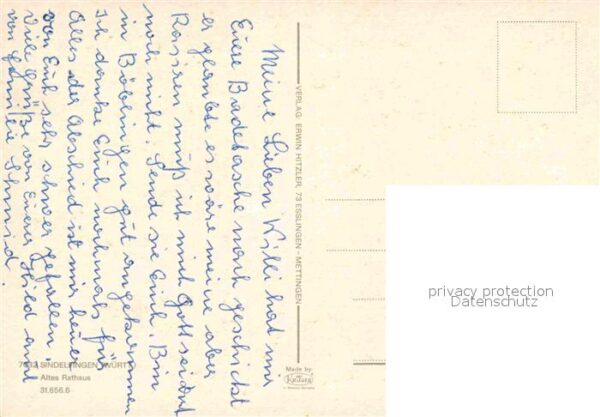 Meine Lieben Willi hat mir
Eure Badetasche nach geschickt
er glaubte es wäre meine aber
Rasiren muß ich mich Gott sei Dank
noch nicht. Sende sie Euch. Bin
in Böblingen gut angekommen
Ich danke Euch nochmals für
Alles der Abschied ist mir heuer
von Euch sehr schwer gefallen.
Viele Grüße an Euch
von Familie Schmid.
VERLAG: ERWIN HITZLER, 73 ESSLINGEN - METTINGEN
SINDELFINGEN (WÜRTT)
Altes Rathaus
31.656.6
Made by
Krüger
privacy protection
Datenschutz